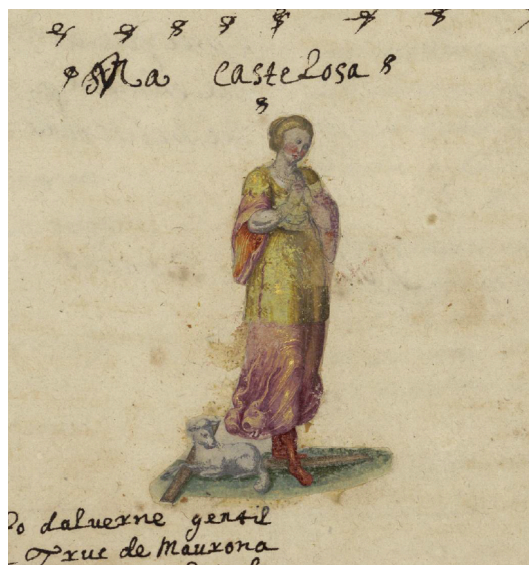 Na castelosa
daluerne gentil
Truc de Maurona